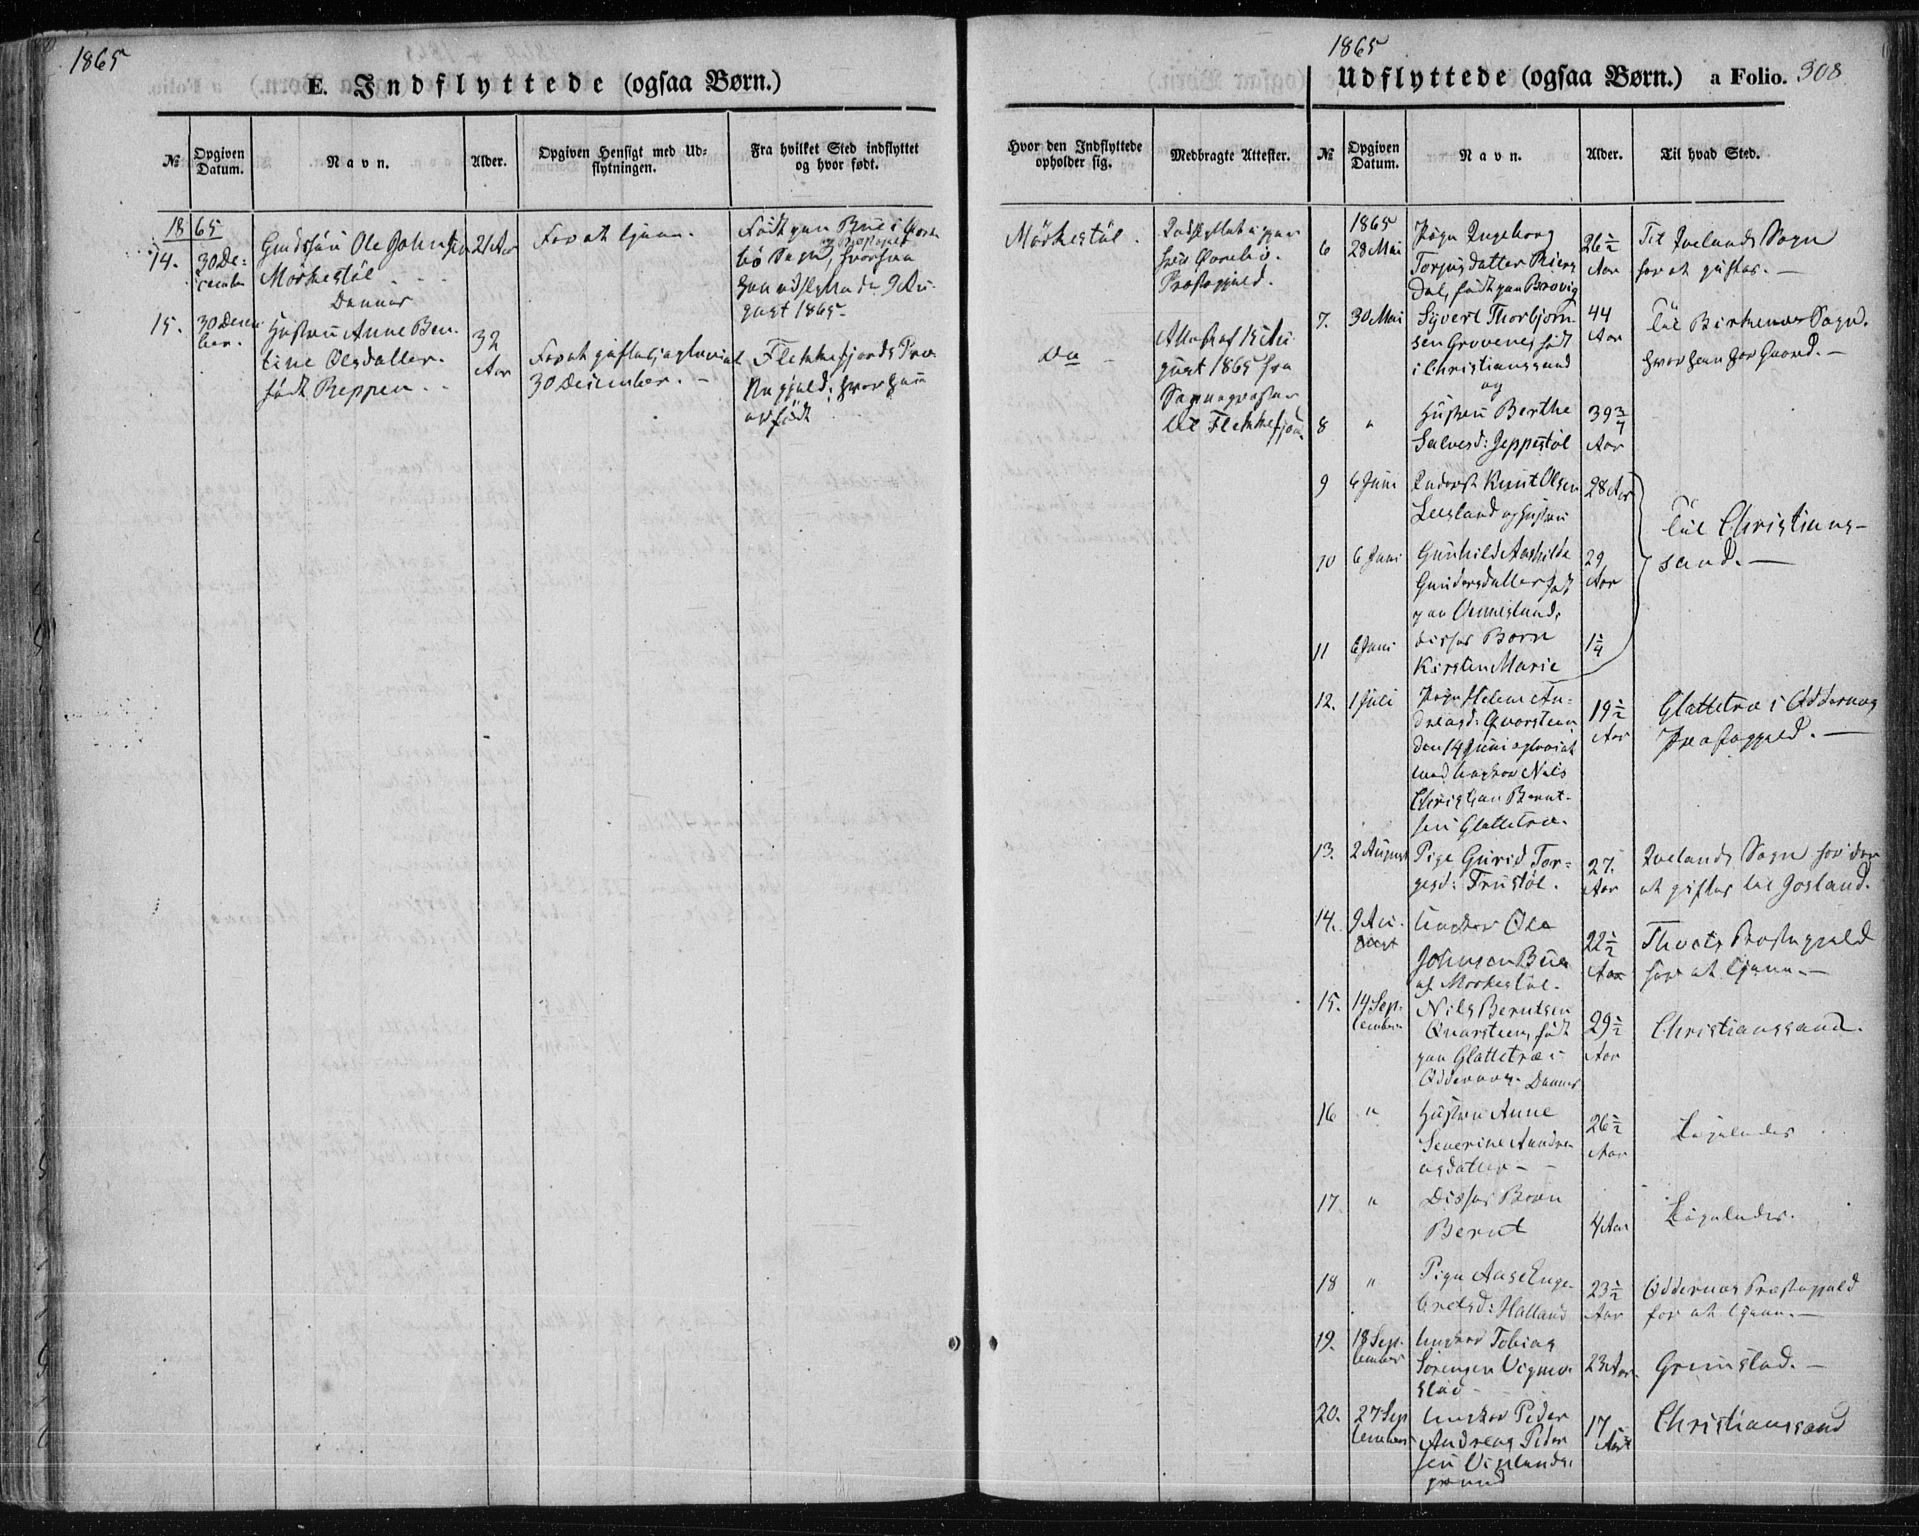 1865
E. Indflyttede (ogsaa Børn.)
№
Opgiven Datum.
Navn.
Alder.
Opgiven Hensigt med Udflytningen.
Fra hvilket Sted indflyttet og hvor født.
Hvor den Indflyttede opholder sig.
Medbragte Attester.
1865
14.
30 December
Ole Johnsen
Mørkestøl
21 Aar
For at tjene.
Født paa Bue i
Sogn, hvorfra
han udflyttede 9 August 1865.
Mørkestøl.
Præstegjeld.
15.
30 December.
Hustru Anne Bentine Olsdatter.
født Reppen.
32
Aar
For at giftes,
30 December.
Flekkefjords Præstegjeld, hvor hun
er født
Do
Attest af 15 August 1865 fra
Sognepræsten
til Flekkefjord
1865
Udflyttede (ogsaa Børn.)
a Folio. 308
№
Opgiven Datum.
Navn.
Alder.
Til hvad Sted.
1865
6
28 Mai
Pige Ingeborg
Torjusdatter
født paa Brovig
26½
Aar
Til Ivelands Sogn
for at giftes.
7.
30 Mai
Syvert Thorbjørnsen Grovene, født
i Christianssand
og
44
Aar
Til Birkenes Sogn.
hvor han har Gaard.
8
"
Hustru Berthe
Salvesd: Jeppestøl
39¾
Aar
9
6 Juni
Knut Olsen
Leesland og Hustru
28 Aar
10
6 Juni
Gunhild Aashilde
Gundersdatter født
paa Vennesland,
29
Aar
11
6 Juni
Disses Barn
Kirsten Marie
1¼
Til Christianssand.
12.
1 Juli
Pige Helene Andreasd: Qvarstein
den 14 Juni
med Ungkar Nils
Christian Berntsen Glattetræ.
19½
Aar
Glattetræ i Oddernes
Præstegjeld.
13.
2 August
Pige Gurid Torgesd: Frustøl.
27.
Aar
Ivelands Sogn for der
at giftes til Josland.
14.
9 August
Ungkar Ole
Johnsen Bue
af Mørkestøl.
22½
Aar
Præstegjeld
for at tjene.
15.
14 September
Nils Berntsen
Qvarstein, født
paa Glattetræ i
Oddernes. Dennes
29½
Aar
Christianssand.
16
"
Hustru Anne
Severine Andreasdatter
26½
Aar
Ligeledes
17.
"
Disses Barn
Bernt
4 Aar
Ligeledes.
18
"
Pige Aase Engebretsd: Halland
23½
Aar
Oddernes Præstegjeld
for at tjene.
19.
18 September
Ungkar Tobias
Sørensen Vigmostad
23 Aar.
Grimstad.
20.
27 September
Ungkar Peder
Andreas Pedersen
17
Aar
Christianssand